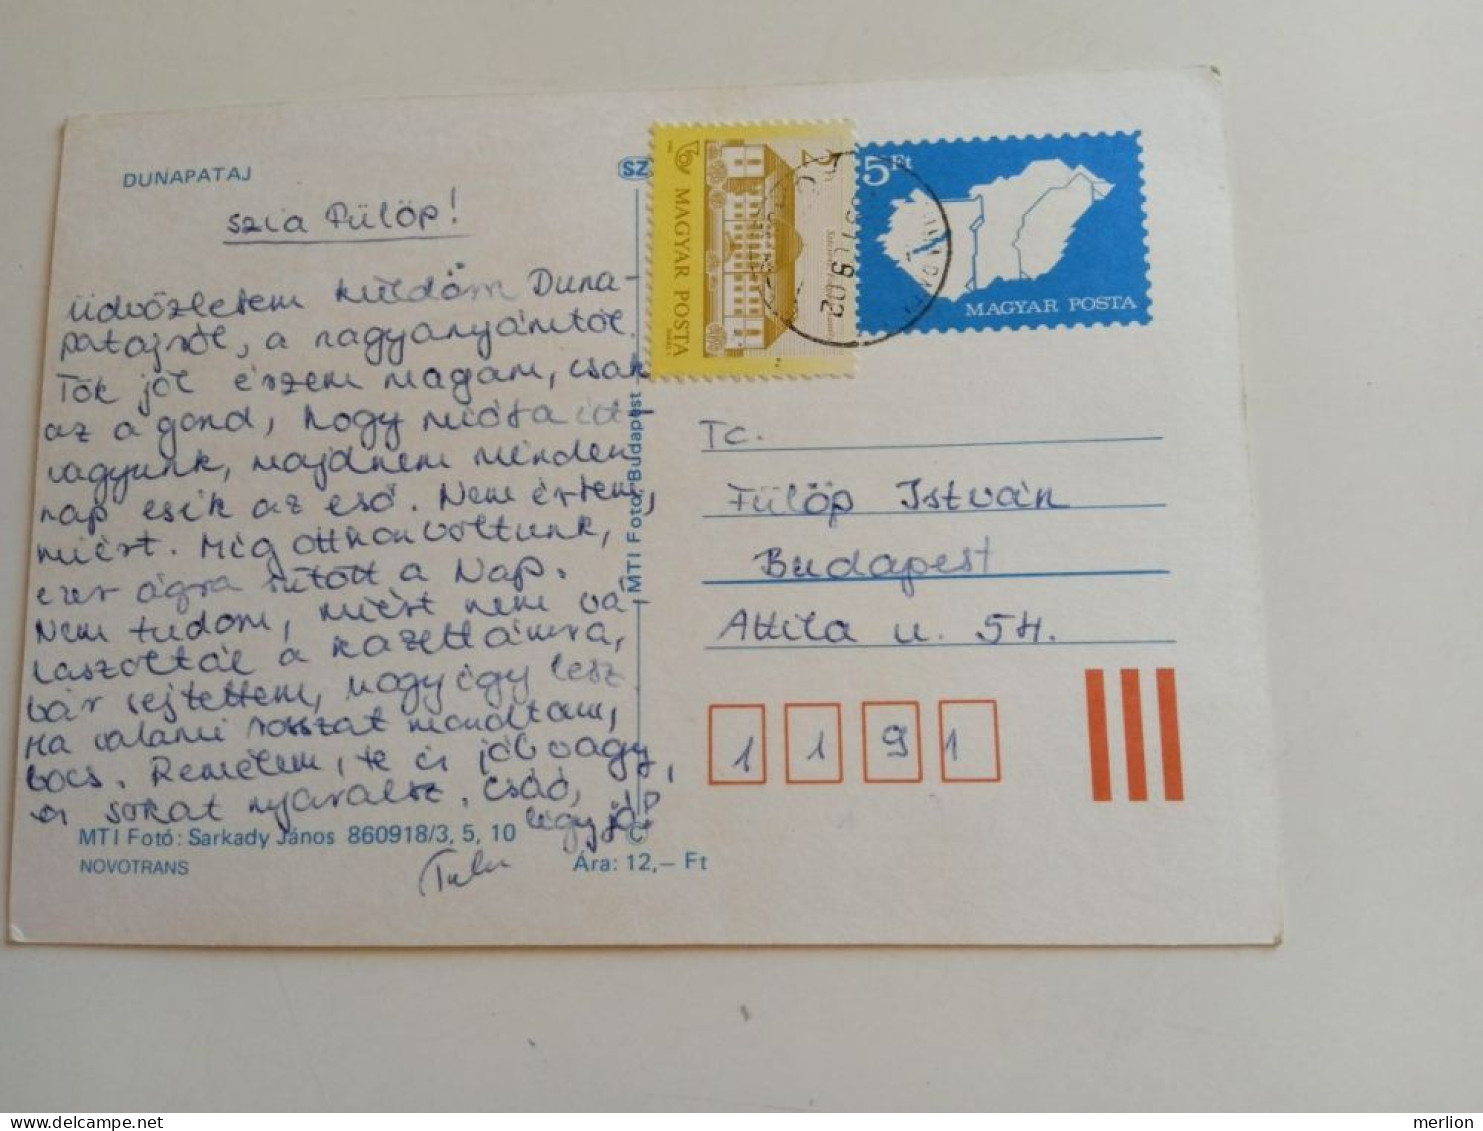 DUNAPATAJ
SZ
Szia Fülöp!
Üdvözletem küldöm Duna-
patajról, a nagyanyámtól.
Tök jól érzem magam, csak
az a gond, hogy mióta itt
vagyunk, majdnem minden
nap esik az eső. Nem értem,
miért. Míg otthon voltunk,
ezer ágra sütött a Nap.
Nem tudom, miért nem vá-
laszoltál a kazettámra,
bár sejtettem, hogy így lesz.
Ha valami rosszat mondtam,
bocs. Remélem, te is jól vagy,
és sokat nyaralsz. Csáó,
légy jó!
MTI Fotó: Sarkady János 860918/3, 5, 10
NOVOTRANS
Ára: 12,– Ft
©
MTI Fotó, Budapest
MAGYAR POSTA
5 Ft
MAGYAR POSTA
Tc.
Fülöp István
Budapest
Attila u. 54.
1 1 9 1
merlion